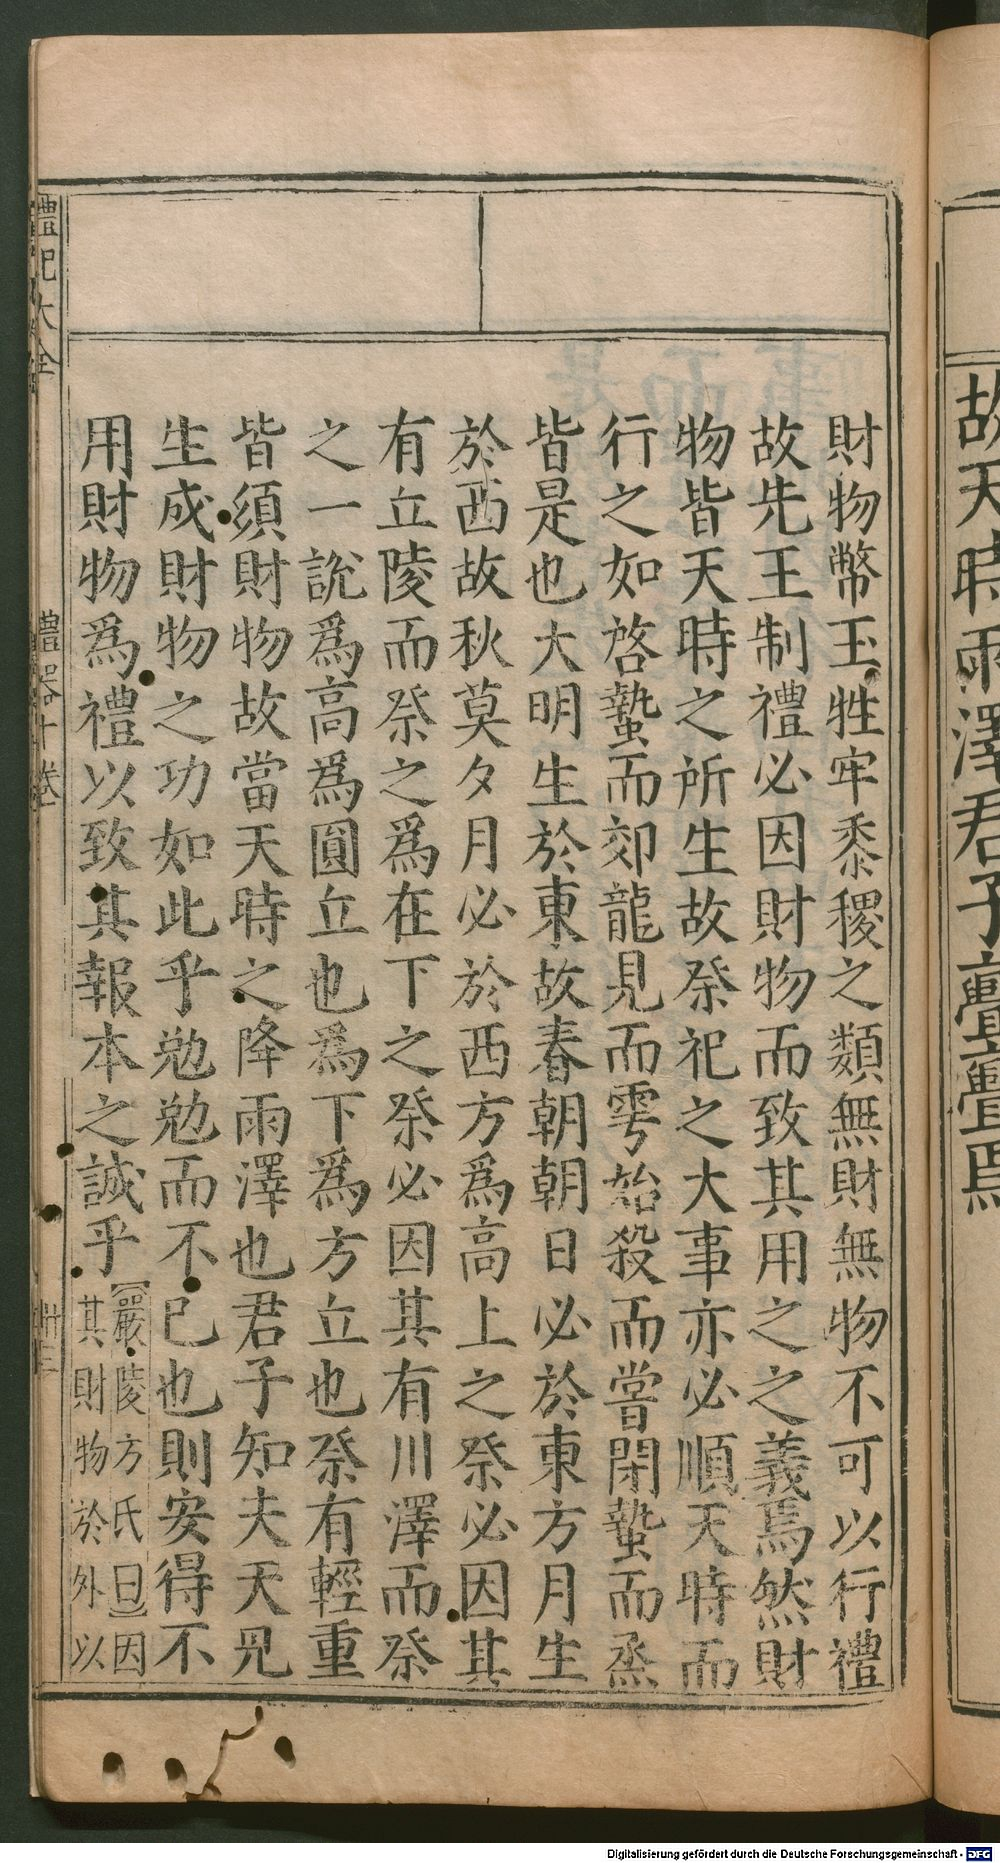 故天時雨澤君子亹亹焉
財物幣玉牲牢黍稷之類無財無物不可以行禮
故先王制禮必因財物而致其用之之義焉然財
物皆天時之所生故祭祀之大事亦必順天時而
行之如啓蟄而郊龍見而雩始殺而嘗閉蟄而烝
皆是也大明生於東故春朝朝日必於東方月生
於西故秋莫夕月必於西方爲高上之祭必因其
有丘陵而祭之爲在下之祭必因其有川澤而祭
之一說爲高爲圓丘也爲下爲方丘也祭有輕重
皆須財物故當天時之降雨澤也君子知夫天
生成財物之功如此乎勉勉而不已也則安得不
用財物爲禮以致其報本之誠乎【嚴陵方氏曰】因
其財物於外以
禮記大全
禮器十卷
卅三
Digitalisierung gefördert durch die Deutsche Forschungsgemeinschaft - DFG